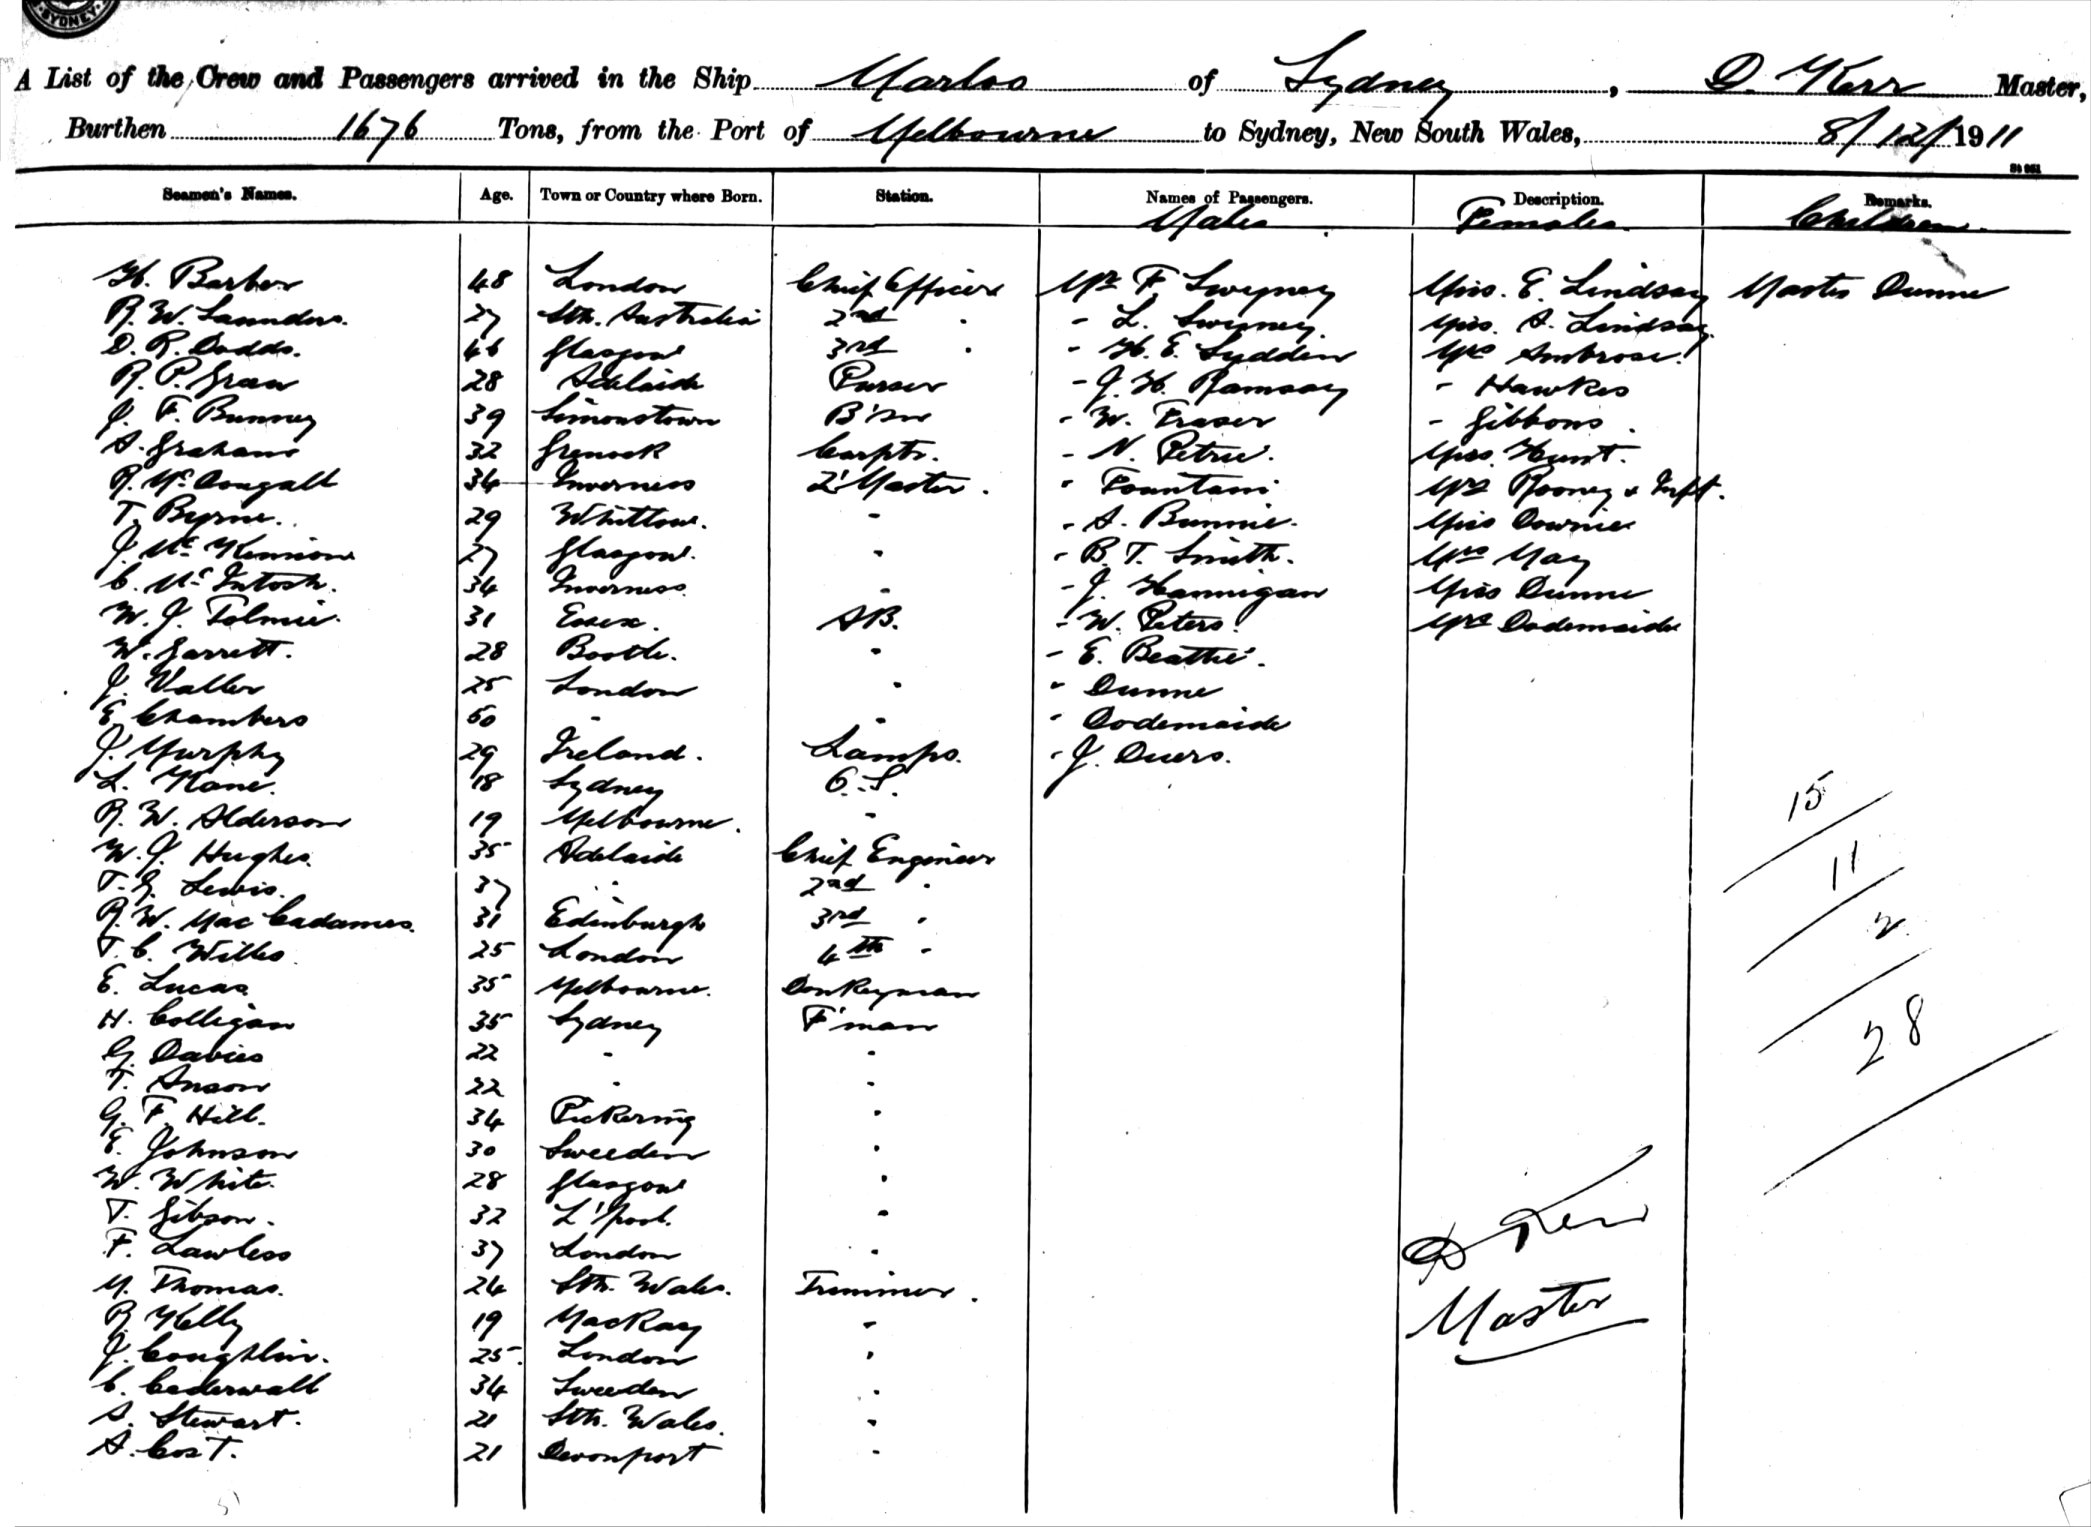 SYDNEY
A List of the Crew and Passengers arrived in the Ship Marloo of Sydney, D. Kerr Master,
Burthen 1676 Tons, from the Port of Melbourne to Sydney, New South Wales, 8/12/1911
Seamen's Names. Age. Town or Country where Born. Station. Names of Passengers. Description. Remarks.
Males Females Children
H. Barber 48 London Chief Officer Mr F Sweeney Miss. E. Lindsay Master Dunne
R. W Saunders. 27 Sth. Australia 2nd " - L. Sweeney Miss. A. Lindsay
D. R. Dodds. 46 Glasgow 3rd " - H. E. Lyddin Mrs Ambrose
R. P. Green 28 Adelaide Purser - J. H. Ramsay - Hawkes
J. F. Bunney 39 Simonstown B'sn - W. Fraser - Gibbons
A. Graham 32 Grenock Carptr. - N. Petrie. Miss. Hunt.
R. McDougall 34 Inverness 2' Master. " Fountain Mrs Rooney & Inft.
T. Byrne. 29 Whittow. " - A. Bunnie. Miss Downie
J. McKennion 27 Glasgow. " - B. T. Smith. Mrs May
C. McIntosh. 34 Inverness " - J. Hannigan Miss Dunne
W. J. Tolmie. 31 Essex. AB. - W. Peters. Mrs Dodemaide
W. Garrett. 28 Bootle. " - E. Beattie.
J. Valler 25 London " " Dunne
E. Chambers 60 " " " Dodemaide
J. Murphy 29 Ireland. Lamps. - J. Duers.
L. Kane. 18 Sydney O.S.
R. W. Alderson 19 Melbourne. " 15
W. J. Hughes. 35 Adelaide Chief Engineer 11
T. G. Lewis. 37 " 2nd "
R. W. MacCadames. 31 Edinburgh 3rd " 2
T. C. Willes 25 London 4th "
E. Lucas 35 Melbourne. Donkeyman
H. Colligan 35 Sydney F'man 28
G. Davies 22 " "
T. Anson 22 " "
G. F. Hill. 34 Pickering "
E. Johnson 30 Sweeden "
W. White. 28 Glasgow "
T. Gibson. 32 L'pool. " D Kerr
F. Lawless 37 London "
M. Thomas. 24 Sth. Wales. Trimmer. Master
R Kelly 19 MacKay "
J. Coughlin. 25. London "
C. Cederwall 34 Sweeden "
A. Stewart. 21 Sth. Wales. "
A. Cost. 21 Devonport "